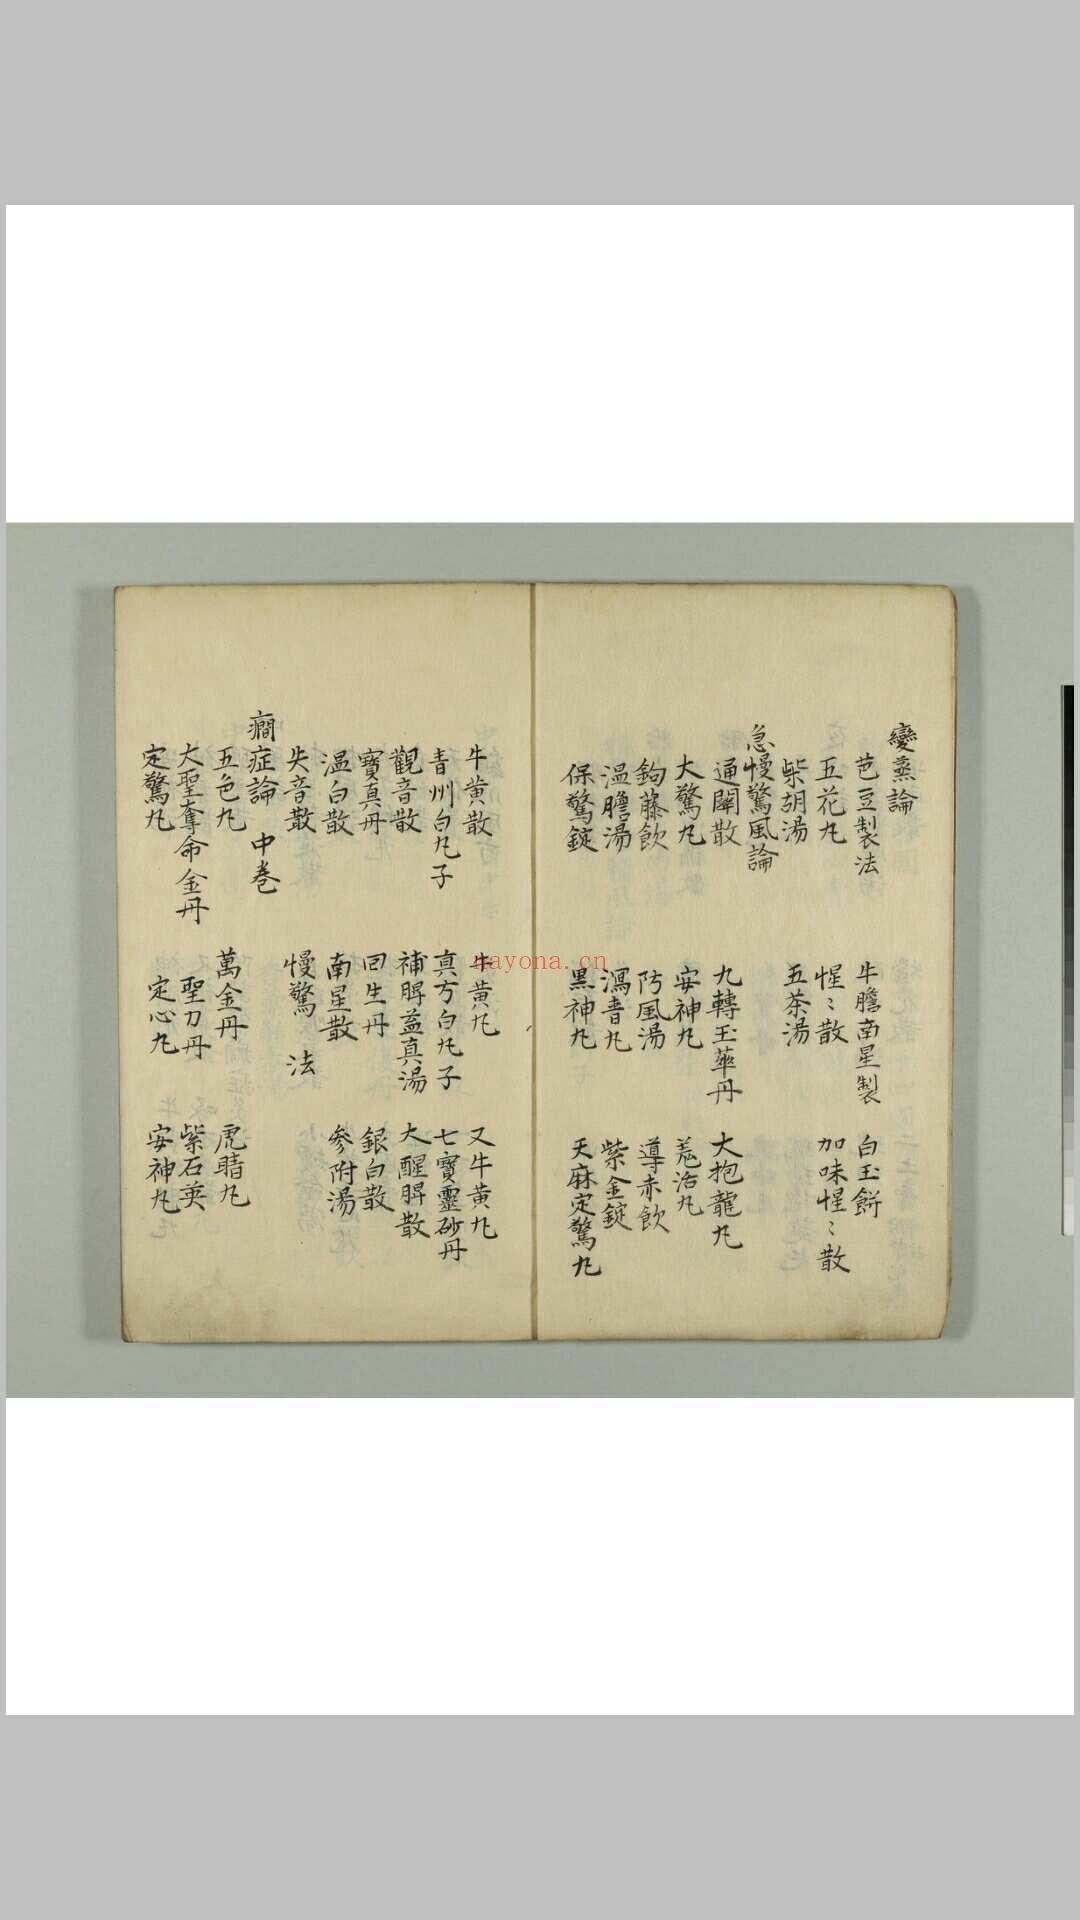 變蒸論
芭豆製法 牛膽南星製 白玉餅
五花丸 惺〻散 加味惺〻散
柴胡湯 五茶湯
急慢驚風論
通関散 九轉玉華丹 大抱龍丸
大驚丸 安神丸 羗活丸
鉤藤飲 防風湯 導赤飲
温膽湯 瀉青丸 紫金錠
保驚錠 黑神丸 天麻定驚丸
牛黄散 牛黄丸 又牛黄丸
青州白丸子 真方白丸子 七寶靈砂丹
觀音散 補脾益真湯 大醒脾散
寶真丹 回生丹 銀白散
温白散 南星散 參附湯
失音散 慢驚 法
癎症論 中巻
五色丸 萬金丹 虎睛丸
大聖奪命金丹 聖刀丹 紫石英
定驚丸 定心丸 安神丸
nayona.cn